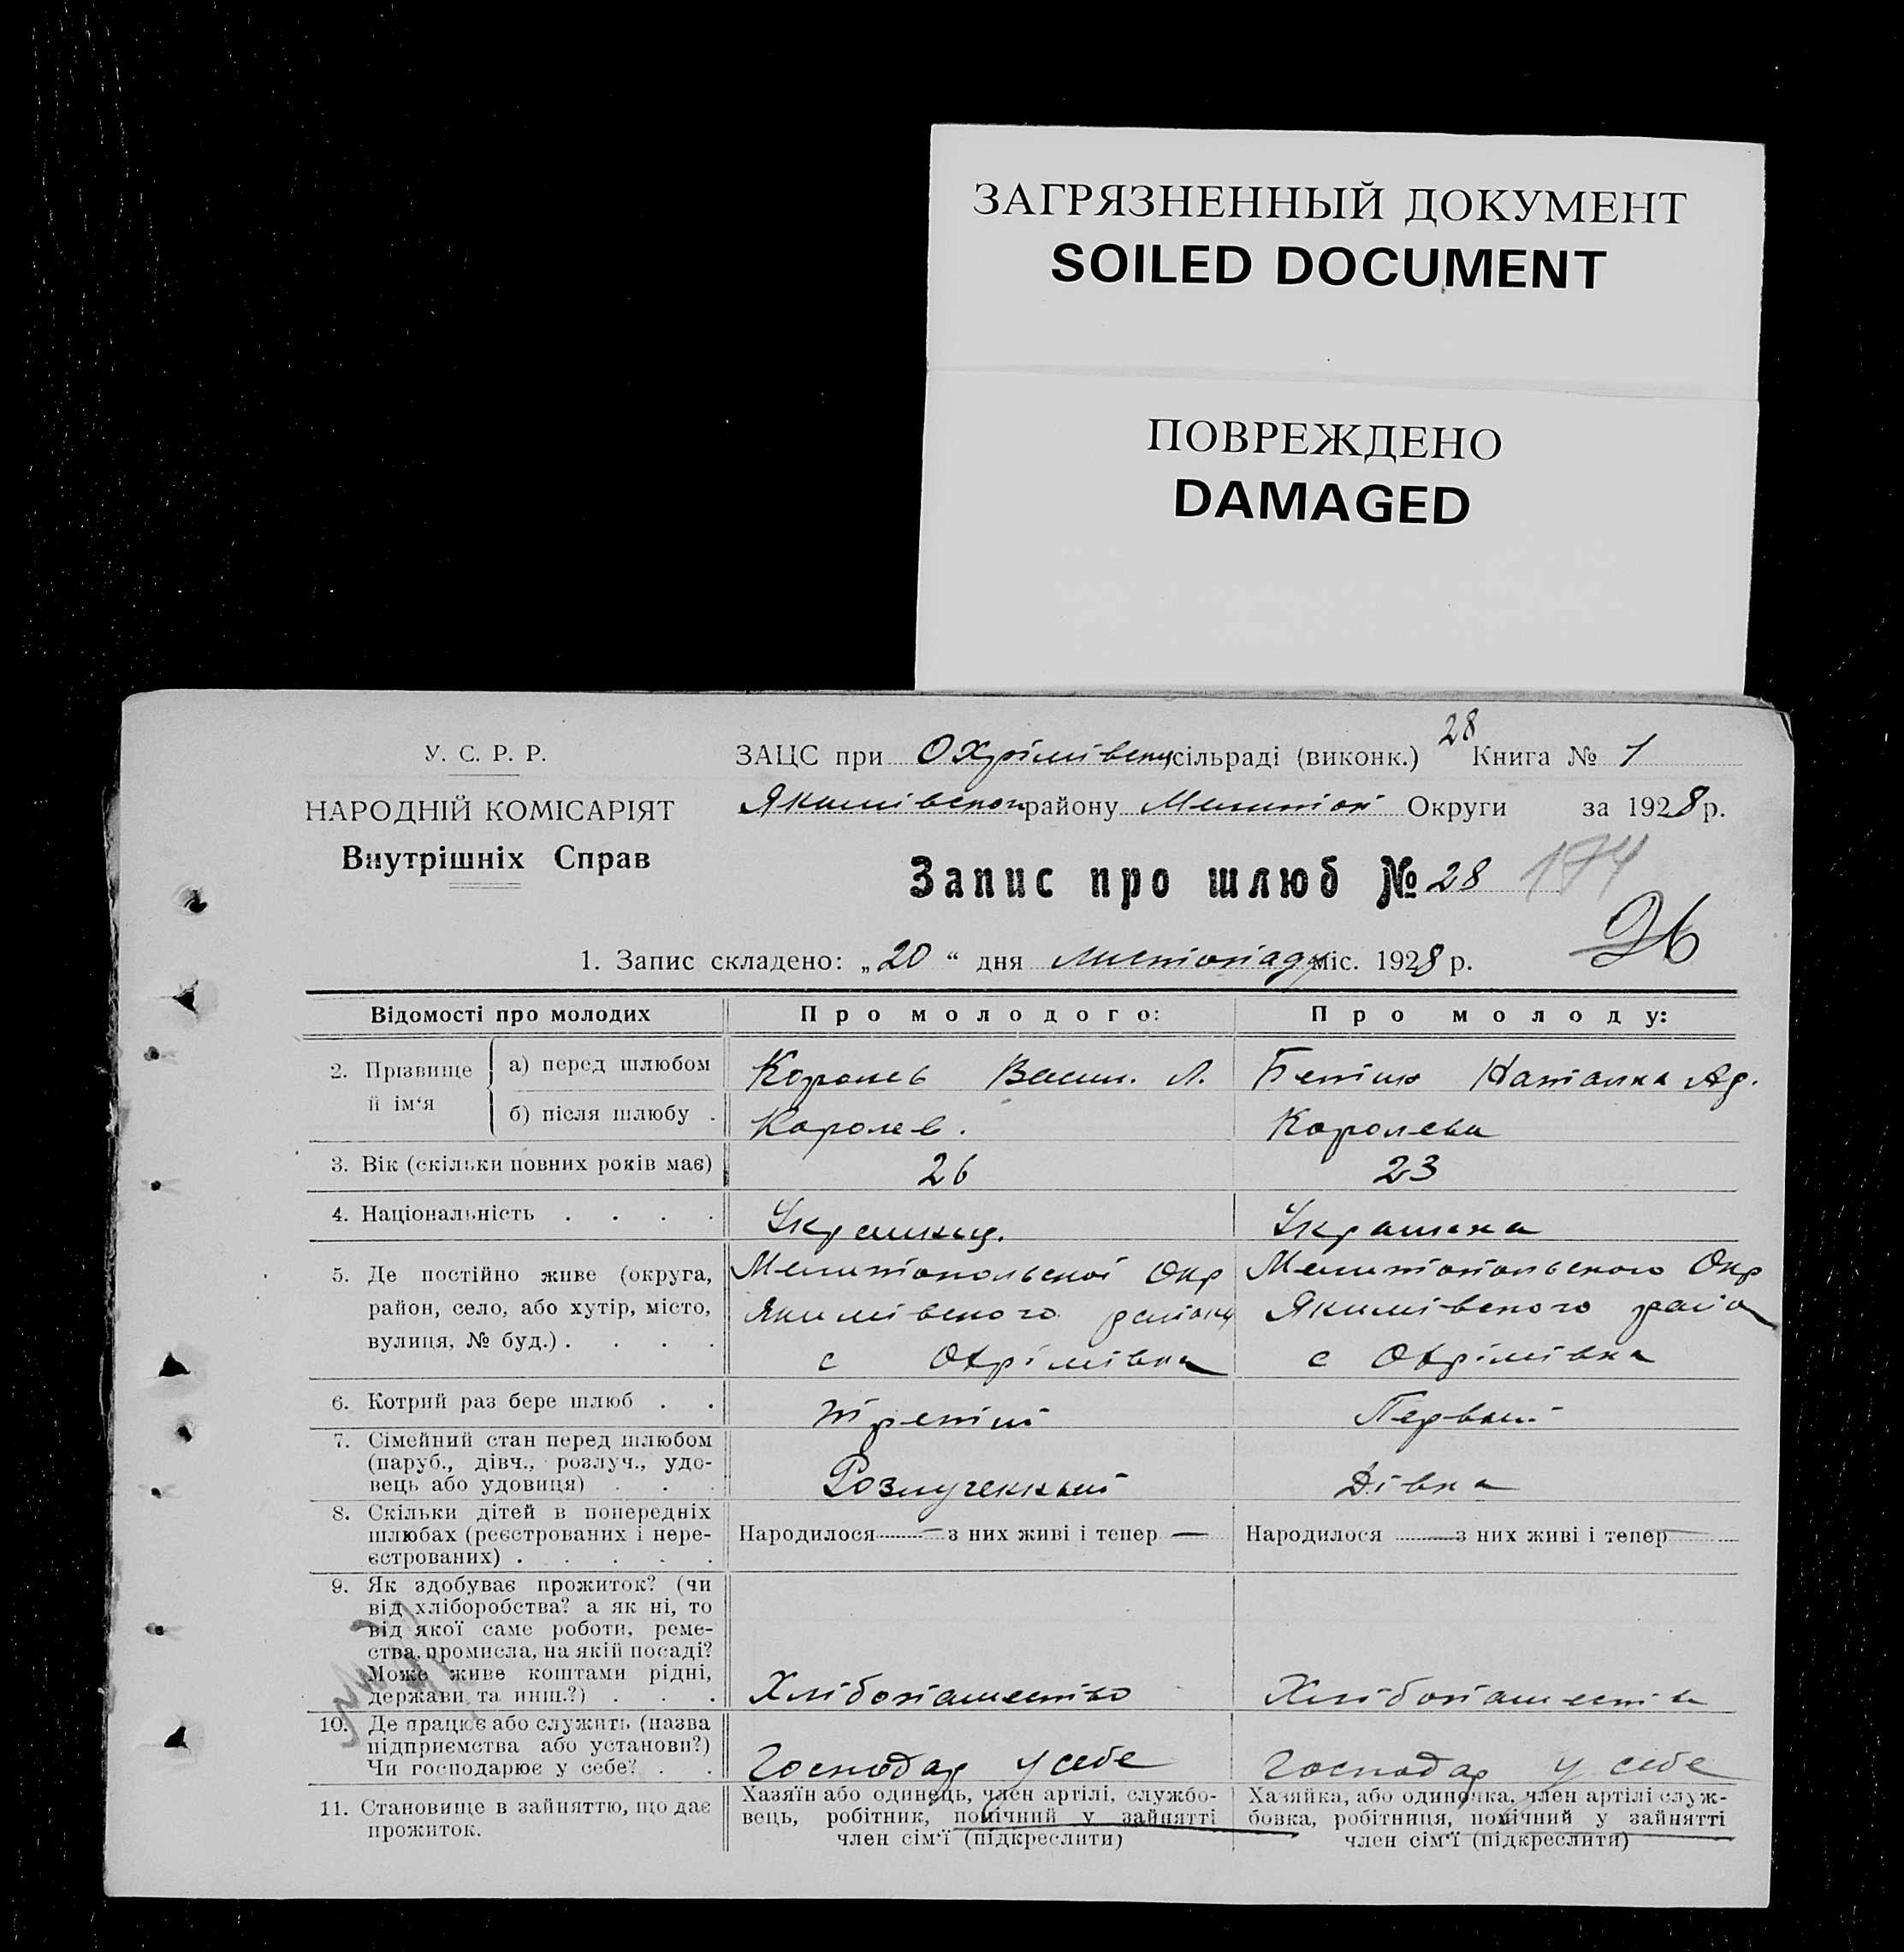 ЗАГРЯЗНЕННЫЙ ДОКУМЕНТ
SOILED DOCUMENT
ПОВРЕЖДЕНО
DAMAGED
28
У. С. Р. Р.
НАРОДНІЙ КОМІСАРІЯТ
Внутрішніх Справ
ЗАЦС при Охрімівську сільраді (виконк.) Книга № 1
Якимівского району Мелитоп Округи за 1928 р.
Запис про шлюб № 28 174
26
1. Запис складено: „20“ дня листопаду міс. 1928 р.
Відомості про молодих Про молодого: Про молоду:
2. Прізвище й ім‘я
а) перед шлюбом Королев Васил. Л. Наталка Ад.
б) після шлюбу . Королев. Королева
3. Вік (скільки повних років має) 26 23
4. Національність . . . . Украинец. Украинка
5. Де постійно живе (округа, район, село, або хутір, місто, вулиця, № буд.) . . . .
Мелитопольскої Окр
Якимівского району
с Охрімівка
Мелитопольского Окр
Якимівского район
с Охрімівка
6. Котрий раз бере шлюб . . Третий Первый
7. Сімейний стан перед шлюбом
(паруб., дівч., розлуч., удо-
вець або удовиця) . . . Розлученный Дівка
8. Скільки дітей в попередніх
шлюбах (реєстрованих і нере-
єстрованих) . . . . .
Народилося — з них живі і тепер —
Народилося — з них живі і тепер —
9. Як здобуває прожиток? (чи
від хліборобства? а як ні, то
від якої саме роботи, реме-
ства, промисла, на якій посаді?
Може живе коштами рідні,
держави та инш.?) . . . Хлібопашество Хлібопашество
10. Де працює або служить (назва
підприємства або установи?)
Чи господарює у себе? . . Господар у себе Господар у себе
11. Становище в зайняттю, що дає
прожиток.
Хазяїн або одинець, член артілі, службо-
вець, робітник, помічний у зайнятті
член сім‘ї (підкреслити)
Хазяйка, або одиночка, член артілі служ-
бовка, робітниця, помічний у зайнятті
член сім‘ї (підкреслити)